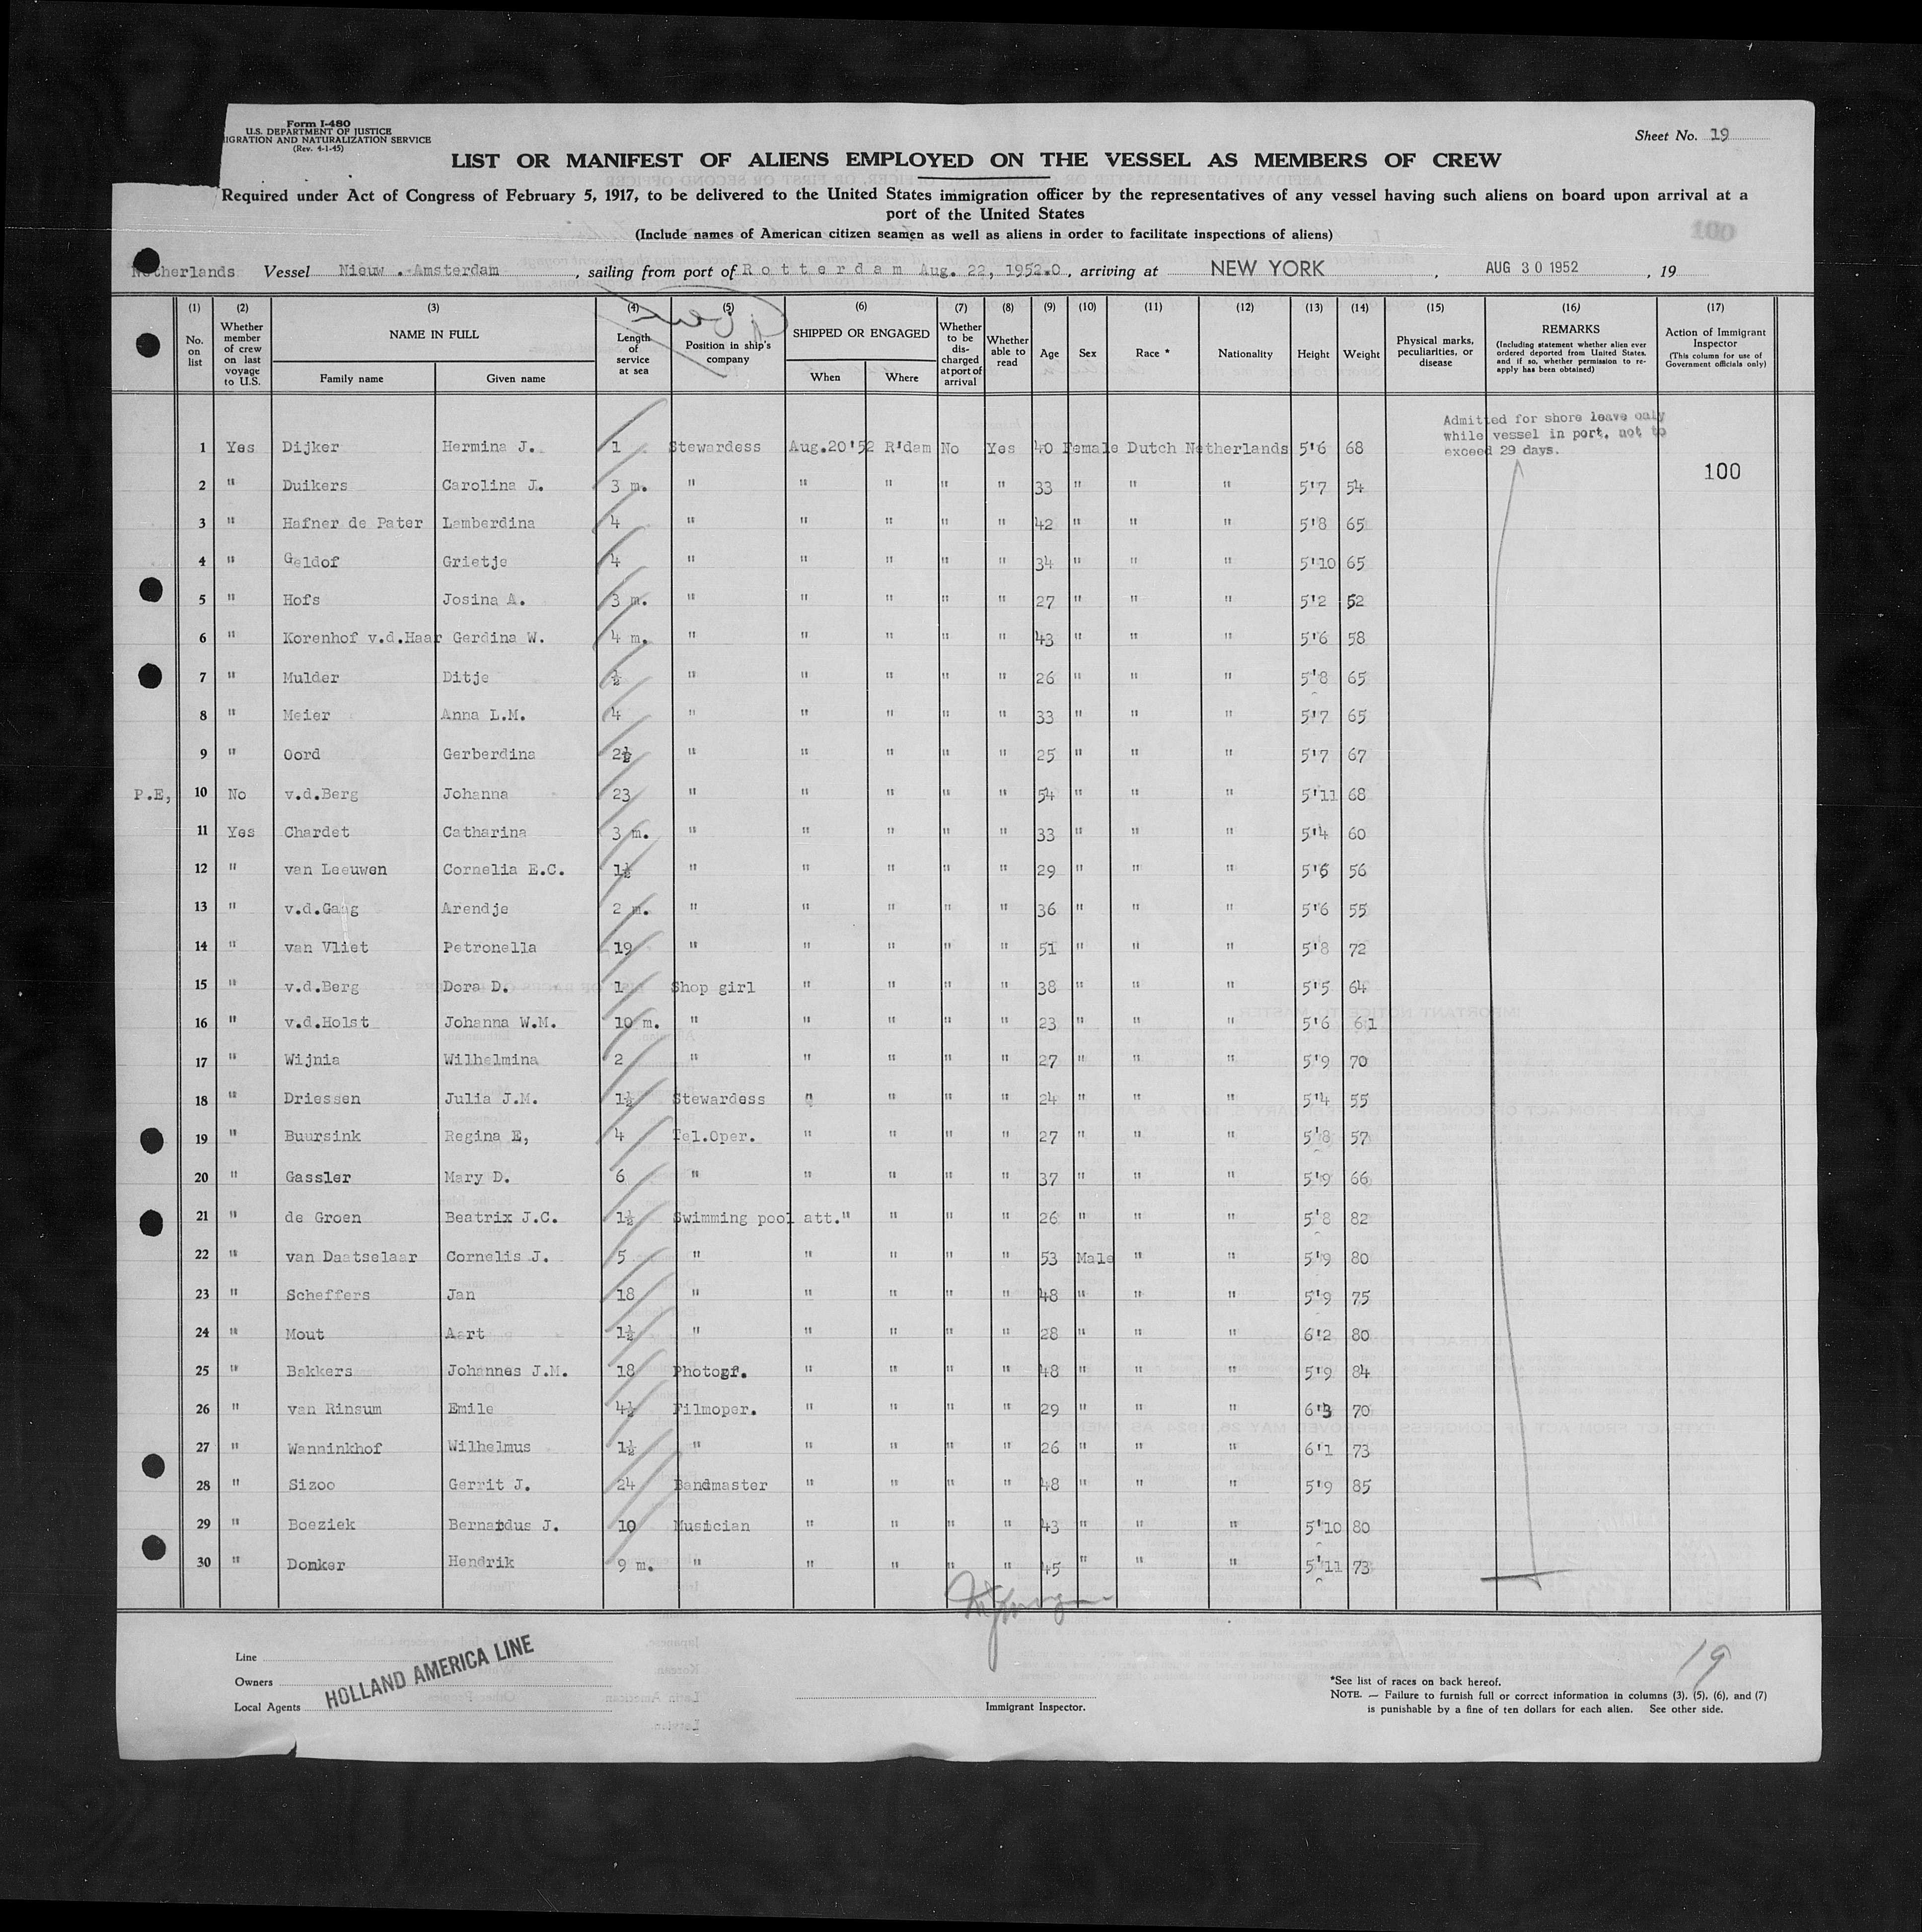 Form I-480
U.S. DEPARTMENT OF JUSTICE
IGRATION AND NATURALIZATION SERVICE
(Rev. 4-1-45)
Sheet No. 19
LIST OR MANIFEST OF ALIENS EMPLOYED ON THE VESSEL AS MEMBERS OF CREW
Required under Act of Congress of February 5, 1917, to be delivered to the United States immigration officer by the representatives of any vessel having such aliens on board upon arrival at a
port of the United States
(Include names of American citizen seamen as well as aliens in order to facilitate inspections of aliens)
100
Netherlands Vessel Nieuw Amsterdam, sailing from port of Rotterdam Aug. 22, 1952.0, arriving at NEW YORK, AUG 30 1952, 19
(1) (2) (3) (4) (5) (6) (7) (8) (9) (10) (11) (12) (13) (14) (15) (16) (17)
No. on list
Whether member of crew on last voyage to U.S.
NAME IN FULL
Family name
Given name
Length of service at sea
Position in ship's company
SHIPPED OR ENGAGED
When
Where
Whether to be discharged at port of arrival
Whether able to read
Age
Sex
Race *
Nationality
Height
Weight
Physical marks, peculiarities, or disease
REMARKS
(Including statement whether alien ever ordered deported from United States, and if so, whether permission to re-apply has been obtained)
Action of Immigrant Inspector
(This column for use of Government officials only)
Admitted for shore leave only
while vessel in port, not to
exceed 29 days.
100
1 Yes Dijker Hermina J. 1 Stewardess Aug.20'52 R'dam No Yes 40 Female Dutch Netherlands 5'6 68
2 " Duikers Carolina J. 3 m. " " " " " 33 " " " 5'7 54
3 " Hafner de Pater Lamberdina 4 " " " " " 42 " " " 5'8 65
4 " Geldof Grietje 4 " " " " " 34 " " " 5'10 65
5 " Hofs Josina A. 3 m. " " " " " 27 " " " 5'2 52
6 " Korenhof v.d.Haar Gerdina W. 4 m. " " " " " 43 " " " 5'6 58
7 " Mulder Ditje ½ " " " " " 26 " " " 5'8 65
8 " Meier Anna L.M. 4 " " " " " 33 " " " 5'7 65
9 " Oord Gerberdina 2½ " " " " " 25 " " " 5'7 67
P.E, 10 No v.d.Berg Johanna 23 " " " " " 54 " " " 5'11 68
11 Yes Chardet Catharina 3 m. " " " " " 33 " " " 5'4 60
12 " van Leeuwen Cornelia E.C. 1½ " " " " " 29 " " " 5'6 56
13 " v.d.Gaag Arendje 2 m. " " " " " 36 " " " 5'6 55
14 " van Vliet Petronella 19 " " " " " 51 " " " 5'8 72
15 " v.d.Berg Dora D. 1 Shop girl " " " " 38 " " " 5'5 64
16 " v.d.Holst Johanna W.M. 10 m. " " " " " 23 " " " 5'6 61
17 " Wijnia Wilhelmina 2 " " " " " 27 " " " 5'9 70
18 " Driessen Julia J.M. 1½ Stewardess " " " " 24 " " " 5'4 55
19 " Buursink Regina E, 4 Tel.Oper. " " " " 27 " " " 5'8 57
20 " Gassler Mary D. 6 " " " " " 37 " " " 5'9 66
21 " de Groen Beatrix J.C. 1½ Swimming pool att." " " " 26 " " " 5'8 82
22 " van Daatselaar Cornelis J. 5 " " " " " 53 Male " " 5'9 80
23 " Scheffers Jan 18 " " " " " 48 " " " 5'9 75
24 " Mout Aart 1½ " " " " " 28 " " " 6'2 80
25 " Bakkers Johannes J.M. 18 Photogr. " " " " 48 " " " 5'9 84
26 " van Rinsum Emile 4½ Filmoper. " " " " 29 " " " 6'3 70
27 " Wanninkhof Wilhelmus 1½ " " " " " 26 " " " 6'1 73
28 " Sizoo Gerrit J. 24 Bandmaster " " " " 48 " " " 5'9 85
29 " Boeziek Bernardus J. 10 Musician " " " " 43 " " " 5'10 80
30 " Donker Hendrik 9 m. " " " " " 45 " " " 5'11 73
Line
Owners
Local Agents
HOLLAND AMERICA LINE
Immigrant Inspector.
19
*See list of races on back hereof.
NOTE. — Failure to furnish full or correct information in columns (3), (5), (6), and (7)
is punishable by a fine of ten dollars for each alien. See other side.